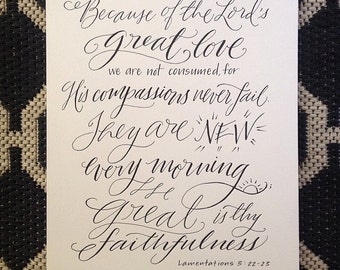 Because of the Lord's
great love
we are not consumed, for
His compassions never fail.
They are NEW
every morning
Great is thy
faithfulness
Lamentations 3:22-23